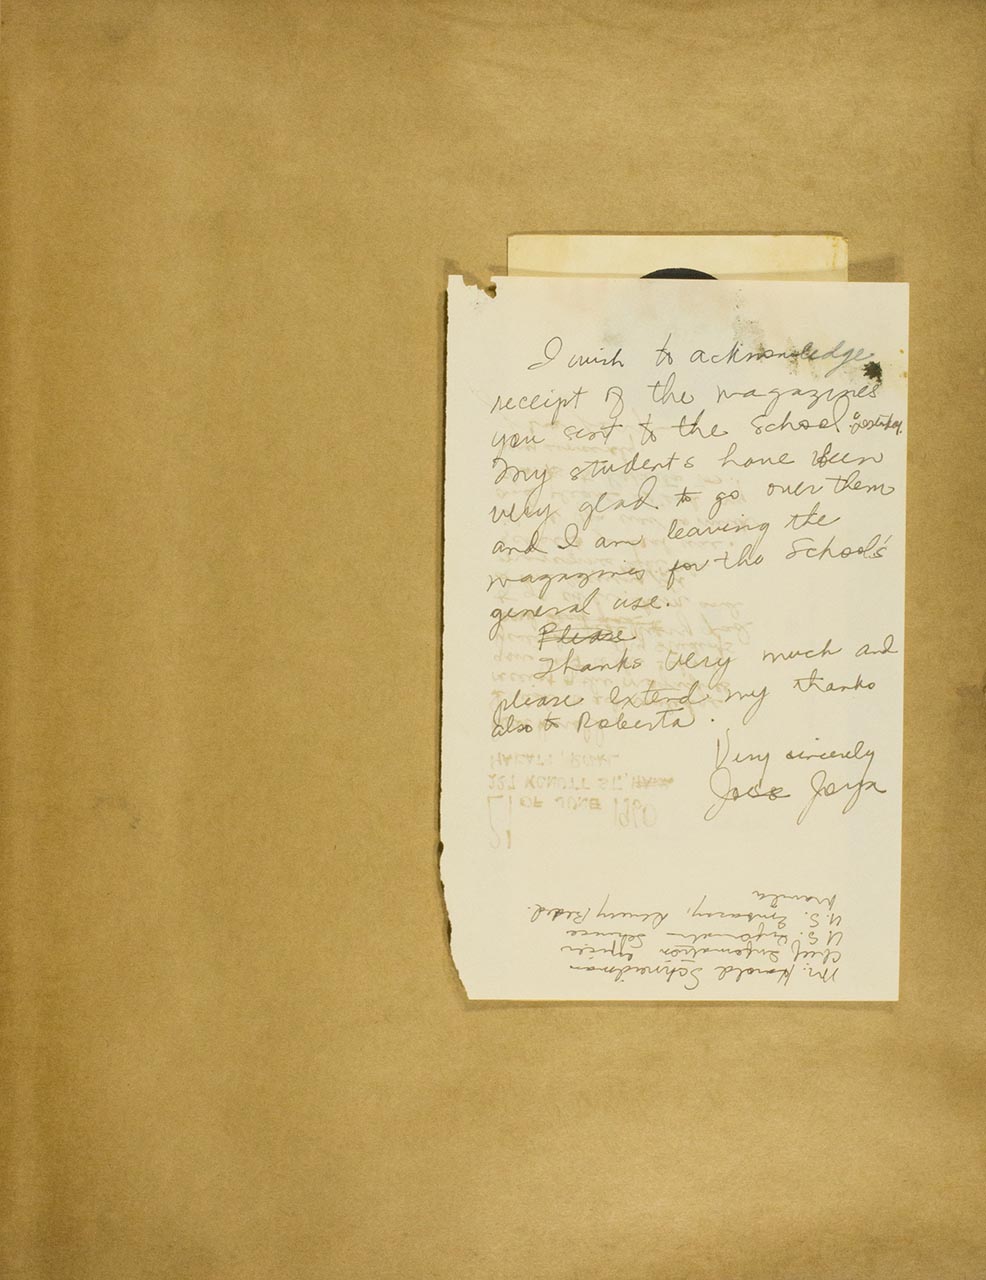 I wish to acknowledge
receipt of the magazines
you sent to the School yesterday.
My students have been
very glad to go over them
and I am leaving the
magazines for the School's
general use.
Please
Thanks very much and
please extend my thanks
also to Roberta.
Very sincerely
Jose Joya
Mr. Harold Schneidman
Chief Information Officer
U.S. Information Service
U.S. Embassy, Dewey Blvd.
Manila
21 OF JUNE 1960
227 MCNUTT ST.,
MAKATI, RIZAL